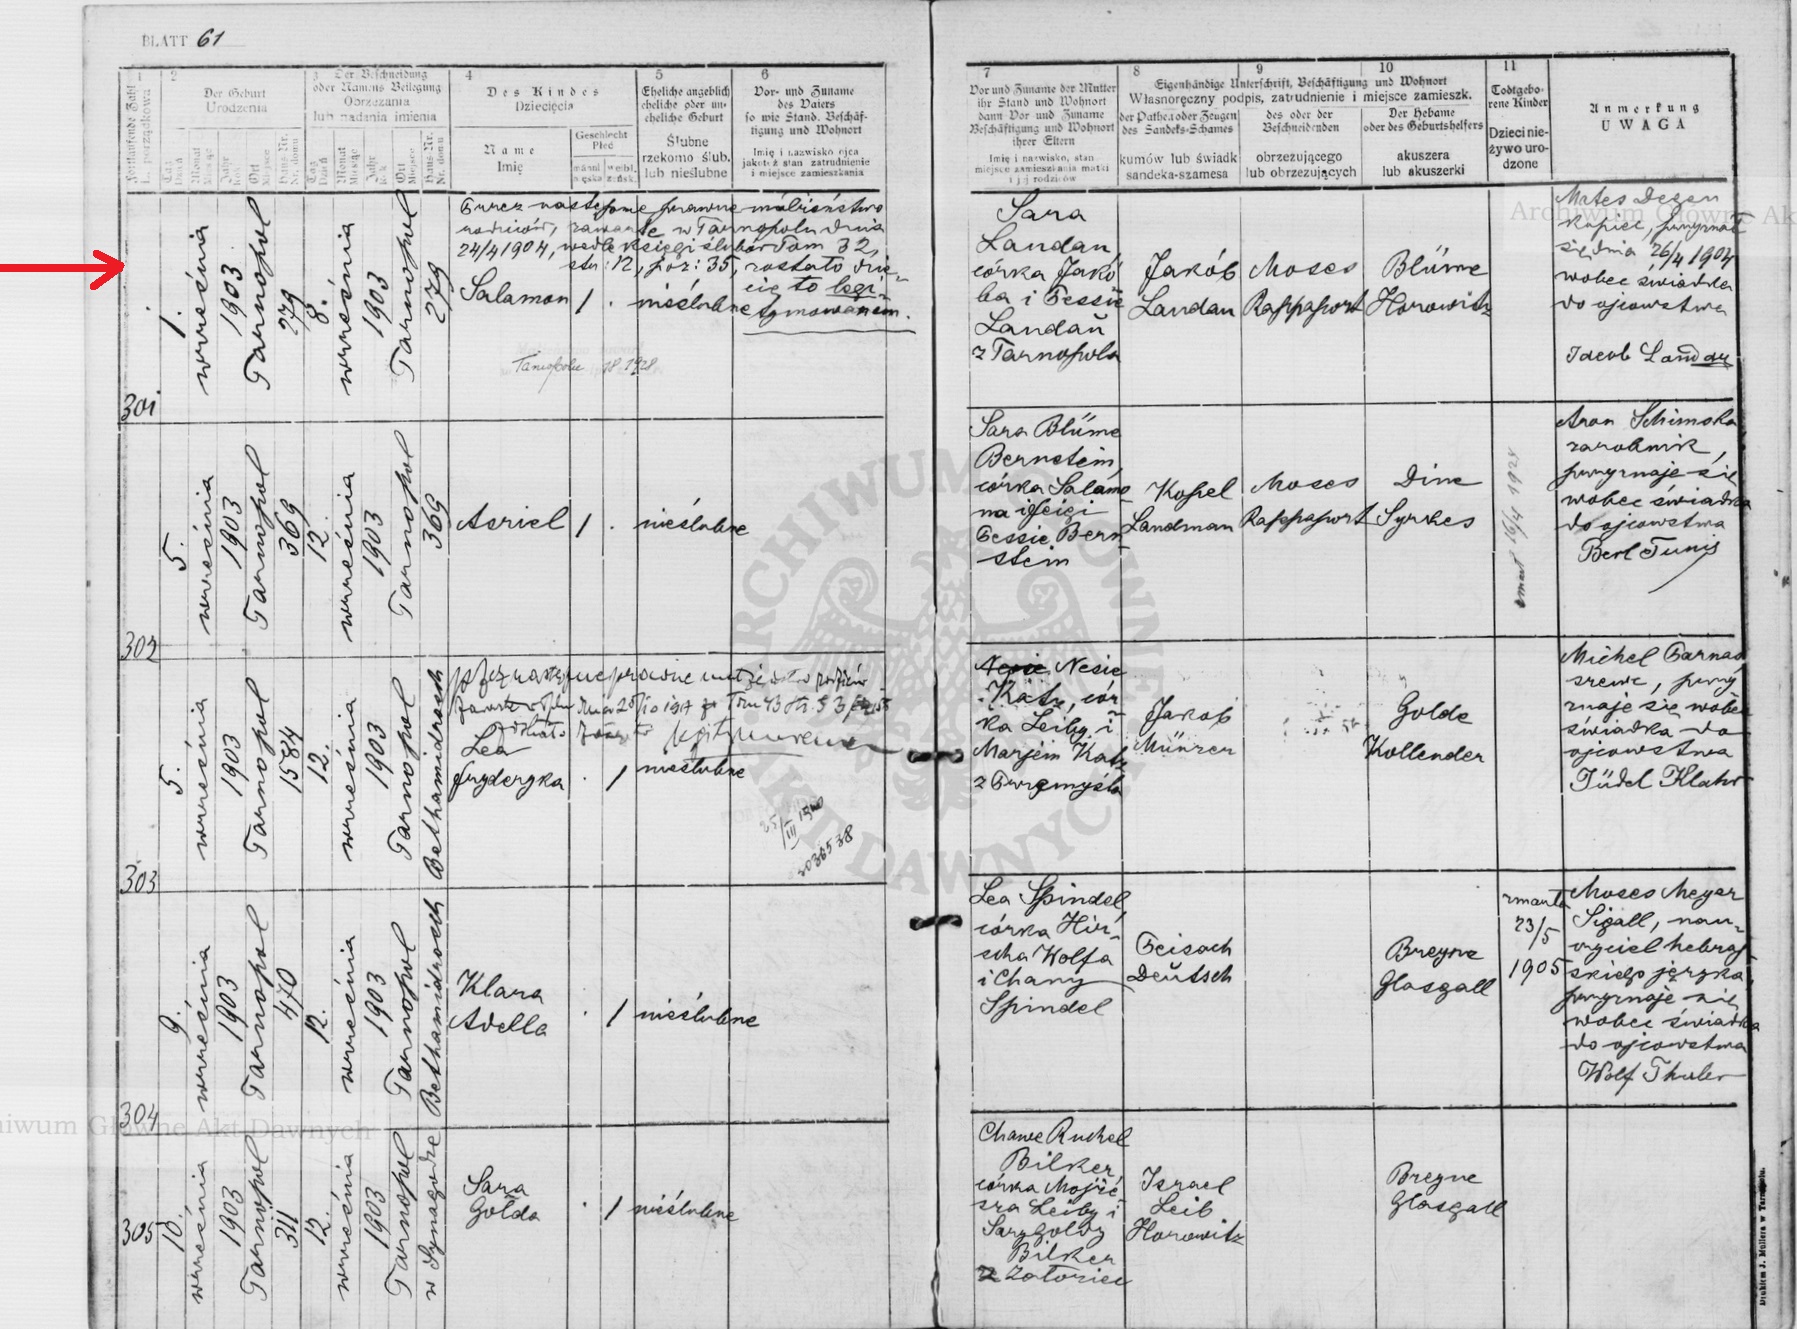 BLATT 61
1
Fortlaufende Zahl
L. porządkowa
2
Der Geburt
Urodzenia
Tag
Dzień
Monat
Miesiąc
Jahr
Rok
Ort
Miejsce
Haus-Nr.
Nr. domu
3 Der Beschneidung
oder Namens Beilegung
Obrzezania
lub nadania imienia
Tag
Dzień
Monat
Miesiąc
Jahr
Rok
Ort
Miejsce
Haus-Nr.
Nr. domu
4
Des Kindes
Dziecięcia
Name
Imię
Geschlecht
Płeć
männl
męska
weibl.
żeńsk.
5
Eheliche angeblich
eheliche oder un-
eheliche Geburt
Ślubne
rzekomo ślub.
lub nieślubne
6
Vor- und Zuname
des Vaters
so wie Stand, Beschäf-
tigung und Wohnort
Imię i nazwisko ojca
jakoteż stan zatrudnienie
i miejsce zamieszkania
7
Vor und Zuname der Mutter
ihr Stand und Wohnort
dann Vor und Zuname
Beschäftigung und Wohnort
ihrer Eltern
Imię i nazwisko, stan
miejsce zamieszkania matki
i jej rodziców
8 9 10
Eigenhändige Unterschrift, Beschäftigung und Wohnort
Własnoręczny podpis, zatrudnienie i miejsce zamieszk.
der Pathen oder Zeugen
des Sandeks-Schames
kumów lub świadk
sandeka-szamesa
des oder der
Beschneidenden
obrzezującego
lub obrzezujących
Der Hebame
oder des Geburtshelfers
akuszera
lub akuszerki
11
Todtgebo-
rene Kinder
Dzieci nie-
żywo uro-
dzone
Anmerkung
UWAGA
301
1.
września
1903
Tarnopol
279
8.
września
1903
Tarnopol
279
Przez następne prawne małżeństwo
rodziców, zawarte w Tarnopolu dnia
24/4 1904, wedle księgi ślubów Tom 32,
str: 12, poz: 35, zostało dzie-
cię to legi-
tymowanem.
Salamon 1 . nieślubne
Tarnopolu 1928
Sara
Landau,
córka Jakó
ba i Pessie
Landau
z Tarnopola
Jakób
Landau
Moses
Rappaport
Blüme
Horowitz
Mates Degen
kupiec, przyznał
się dnia 26/4 1904
wobec świadka
do ojcowstwa
Jacob Landau
302
5.
września
1903
Tarnopol
369
12.
września
1903
Tarnopol
369
Asriel 1 . nieślubne
Sara Blüme
Bernstein,
córka Salamo
na i
Pessie Bern-
stein
Kopel
Landman
Moses
Rappaport
Dine
Syrkes
zmarł 16/4 1928
Aron
zarobnik,
przyznaje się
wobec świadka
do ojcowstwa
Berl Tunis
303
5.
września
1903
Tarnopol
1584
12.
września
1903
Tarnopol
Bethamidrasch
przez następne prawne małżeństwo rodziców
Lea
Fryderyka . 1 nieślubne
25/III 1940
2036538
Nesie
Katz, cór-
ka Leiby i
Marjem Katz
z Przemyśla
Jakob
Münzer
Golde
Kollender
Michel Parnas
szewc, przy
znaje się wobec
świadka do
ojcowstwa
Jüdel Klahr
304
9.
września
1903
Tarnopol
470
12.
września
1903
Tarnopol
Bethamidrasch
Klara
Adella . 1 nieślubne
Lea Spindel,
córka Hir-
scha Wolfa
i Chany
Spindel
Peisach
Deutsch
Breyne
Glasgall
zmarła
23/5
1905
Moses Meyer
Sigall, nau-
czyciel hebraj-
skiego języka,
przyznaje się
wobec świadka
do ojcowstwa
Wolf Thaler
305
10.
września
1903
Tarnopol
311
12.
września
1903
Tarnopol
w Synagodze
Sara
Golda . 1 nieślubne
Chawe Ruchel
Bilker,
córka Mojże
sza Leiby i
Sary Goldy
Bilker
z Załoziec
Israel
Leib
Horowitz
Breyne
Glasgall
Drukiem J. Müllera w Tarnopolu.
ARCHIWUM GŁÓWNE AKT DAWNYCH
Archiwum Główne Ak
hiwum Główne Akt Dawnych